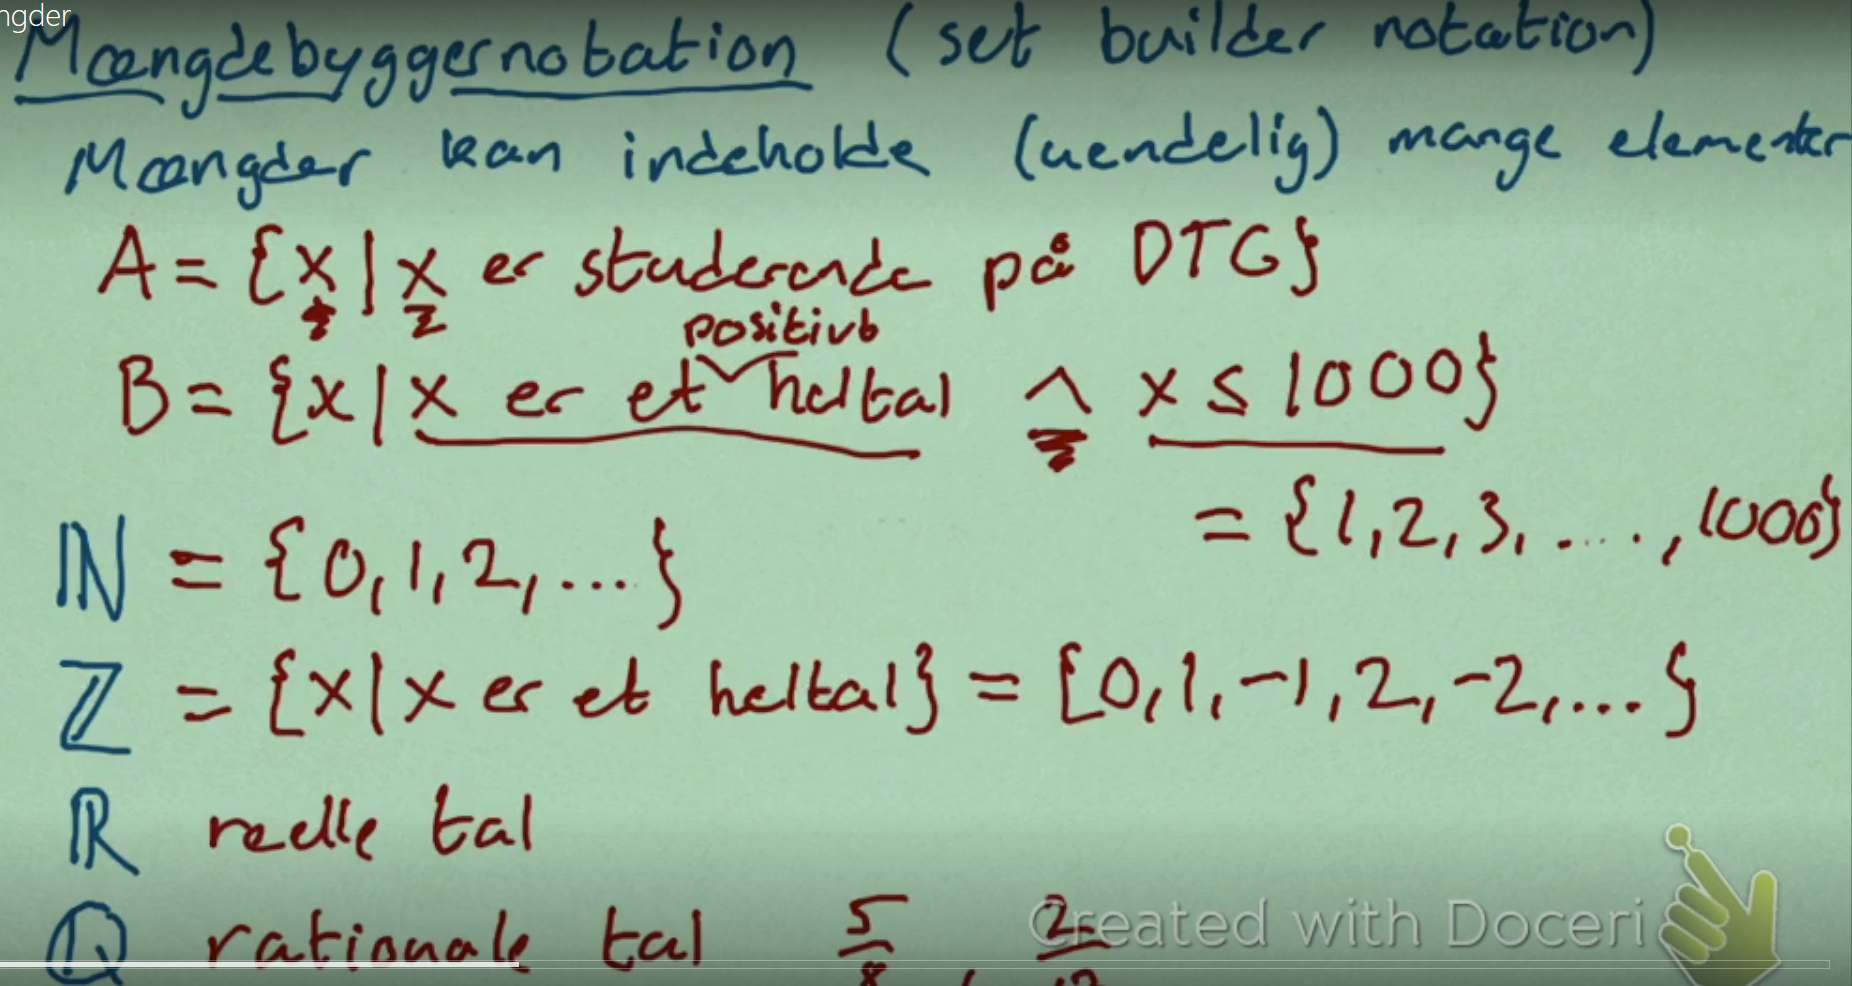 ngder
Mængdebyggernotation (set builder notation)
Mængder kan indeholde (uendelig) mange elementer
A = {x | x er studerende på DTG}
positivt
B = {x | x er et heltal ∧ x ≤ 1000}
= {1, 2, 3, ...., 1000}
ℕ = {0, 1, 2, ...}
ℤ = {x | x er et heltal} = {0, 1, -1, 2, -2, ...}
ℝ reelle tal
ℚ rationale tal 5/8, 2
Created with Doceri